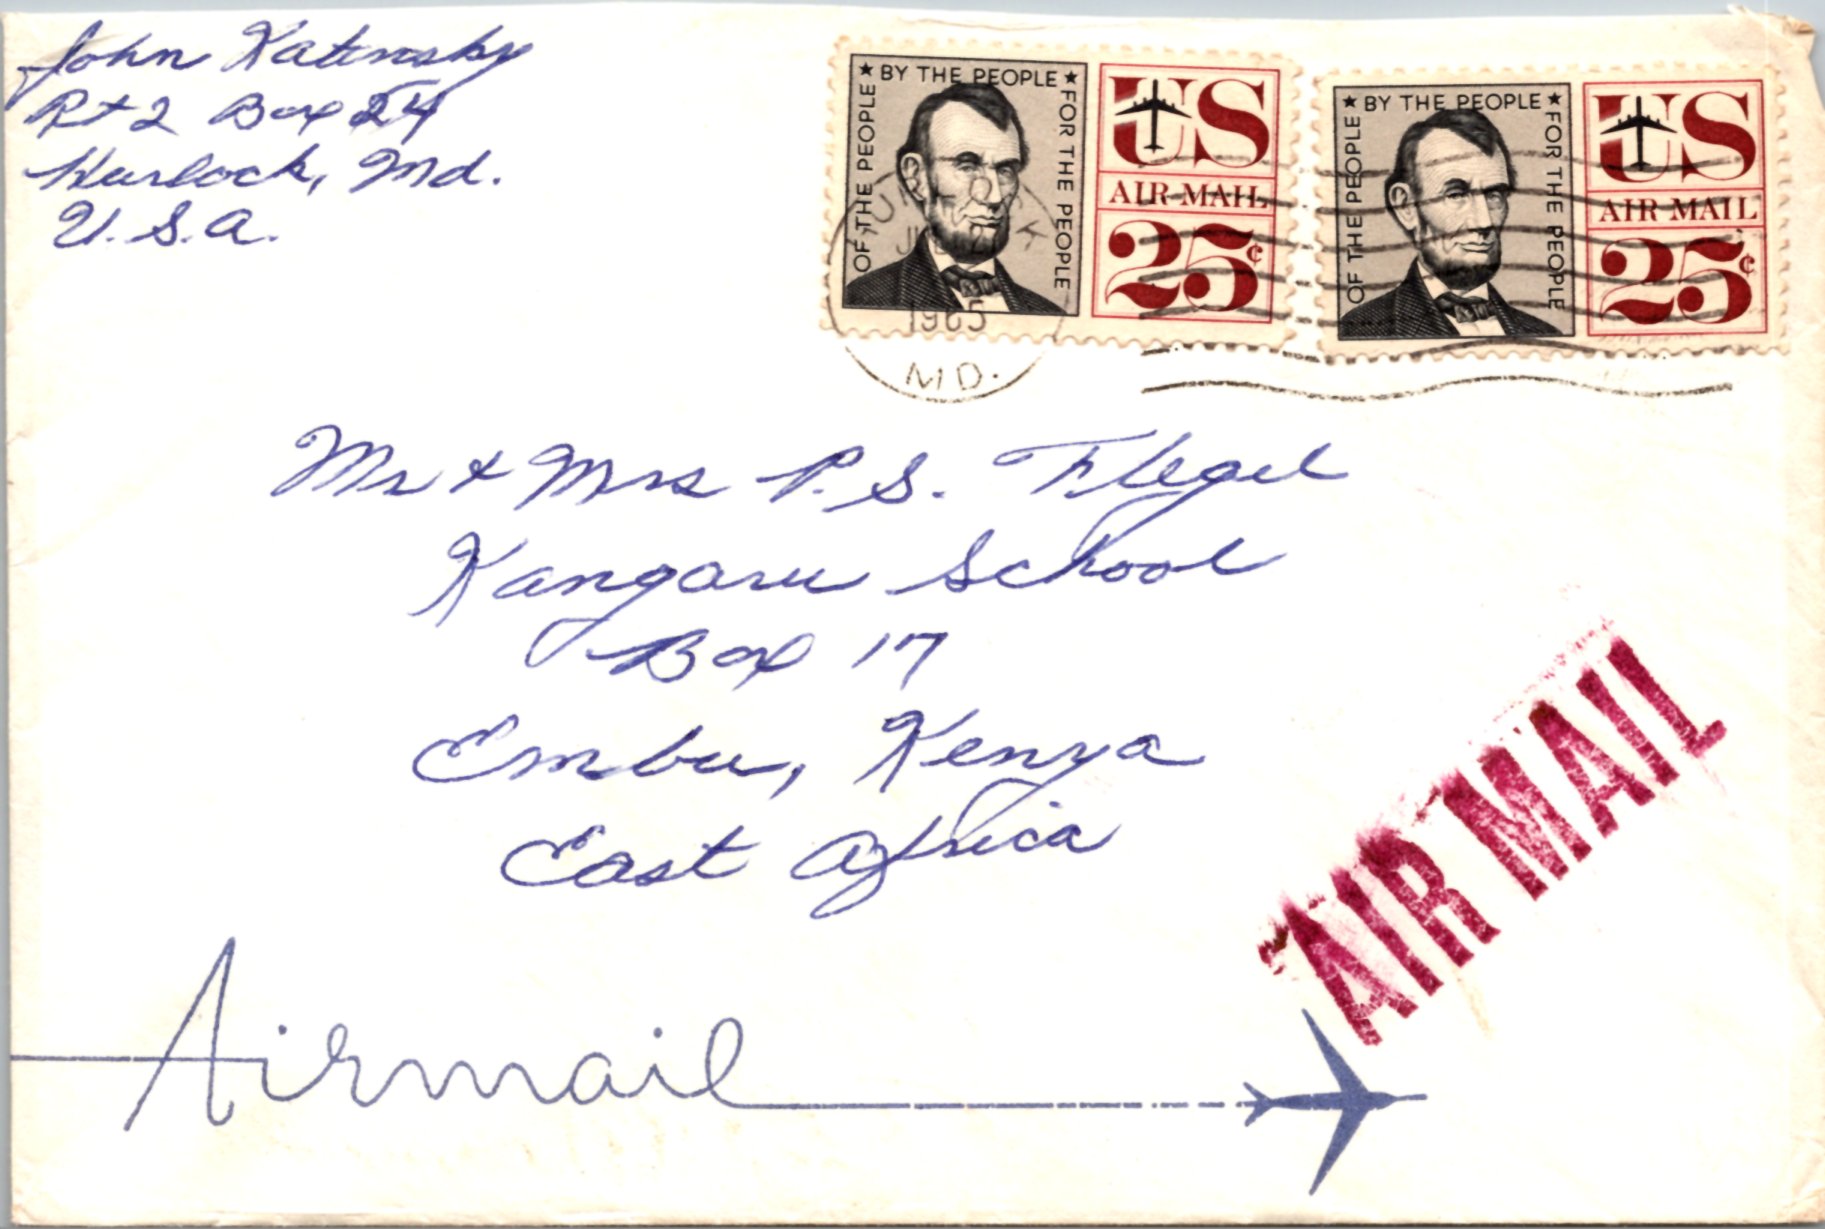 John Katinsky
Rt 2 Box 24
Hurlock, Md.
U.S.A.
★ BY THE PEOPLE ★
OF THE PEOPLE
FOR THE PEOPLE
US
AIR MAIL
25¢
★ BY THE PEOPLE ★
OF THE PEOPLE
FOR THE PEOPLE
US
AIR MAIL
25¢
1965
MD.
Mr & Mrs P. S. Flegel
Kangaru School
Box 17
Embu, Kenya
East Africa
AIR MAIL
Airmail